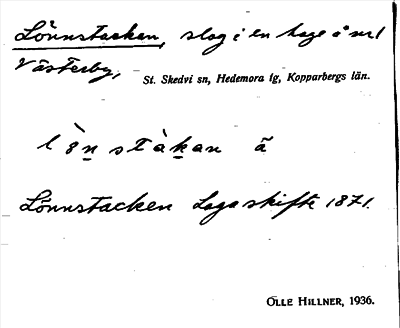 Lönnstacken, slog i en hage å nr 1
Västerby, St. Skedvi sn, Hedemora tg, Kopparbergs län.
Lönnstacken Laga skifte 1871.
OLLE HILLNER, 1936.